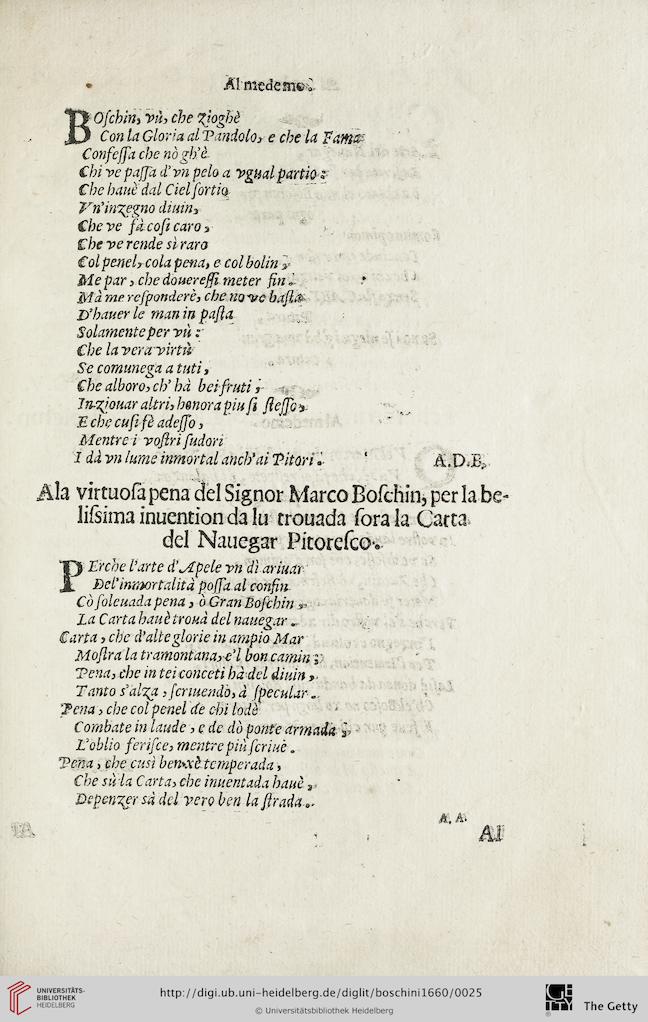 Al medemo.
BOſchin, vù, che zioghè
Con la Gloria al Pandolo, e che la Fama
Confeſſa che nò gh'è
Chi ve paſſa d'vn pelo a vgual partio:
Che hauè dal Ciel ſortio
Vn'inzegno diuin,
Che ve fà coſi caro,
Che ve rende sì raro
Col penel, cola pena, e col bolin;
Me par, che douereſſi meter fin.
Mà me reſponderè, che no ve baſta
D'hauer le man in paſta
Solamente per vù:
Che la vera virtù
Se comunega a tuti,
Che alboro, ch' hà bei fruti;
In ziouar altri, honora piu ſi ſteſſo,
E che cuſi fè adeſſo,
Mentre i voſtri ſudori
I dà vn lume inmortal anch'ai Pitori.
A.D.B.
Ala virtuoſa pena del Signor Marco Boſchin, per la be-
liſsima inuention da lu trouada ſora la Carta
del Nauegar Pitoreſco.
PErche l'arte d'Apele vn dì ariuar
Del'inmortalità poſſa al confin
Cò ſoleuada pena, ò Gran Boſchin,
La Carta hauè trouà del nauegar.
Carta, che d'alte glorie in ampio Mar
Moſtra la tramontana, e'l bon camin;
Pena, che in tei conceti hà del diuin,
Tanto s'alza, ſcriuendo, à ſpecular.
Pena, che col penel de chi lodè
Combate in laude, e de dò ponte armada;
L'oblio feriſce, mentre più ſcriuè.
Pena, che cusì ben temperada,
Che sù la Carta, che inuentada hauè,
Depenzer sà del vero ben la ſtrada.
A. A.
Al
UNIVERSITÄTS-
BIBLIOTHEK
HEIDELBERG
http://digi.ub.uni-heidelberg.de/diglit/boschini1660/0025
© Universitätsbibliothek Heidelberg
GETTY
The Getty